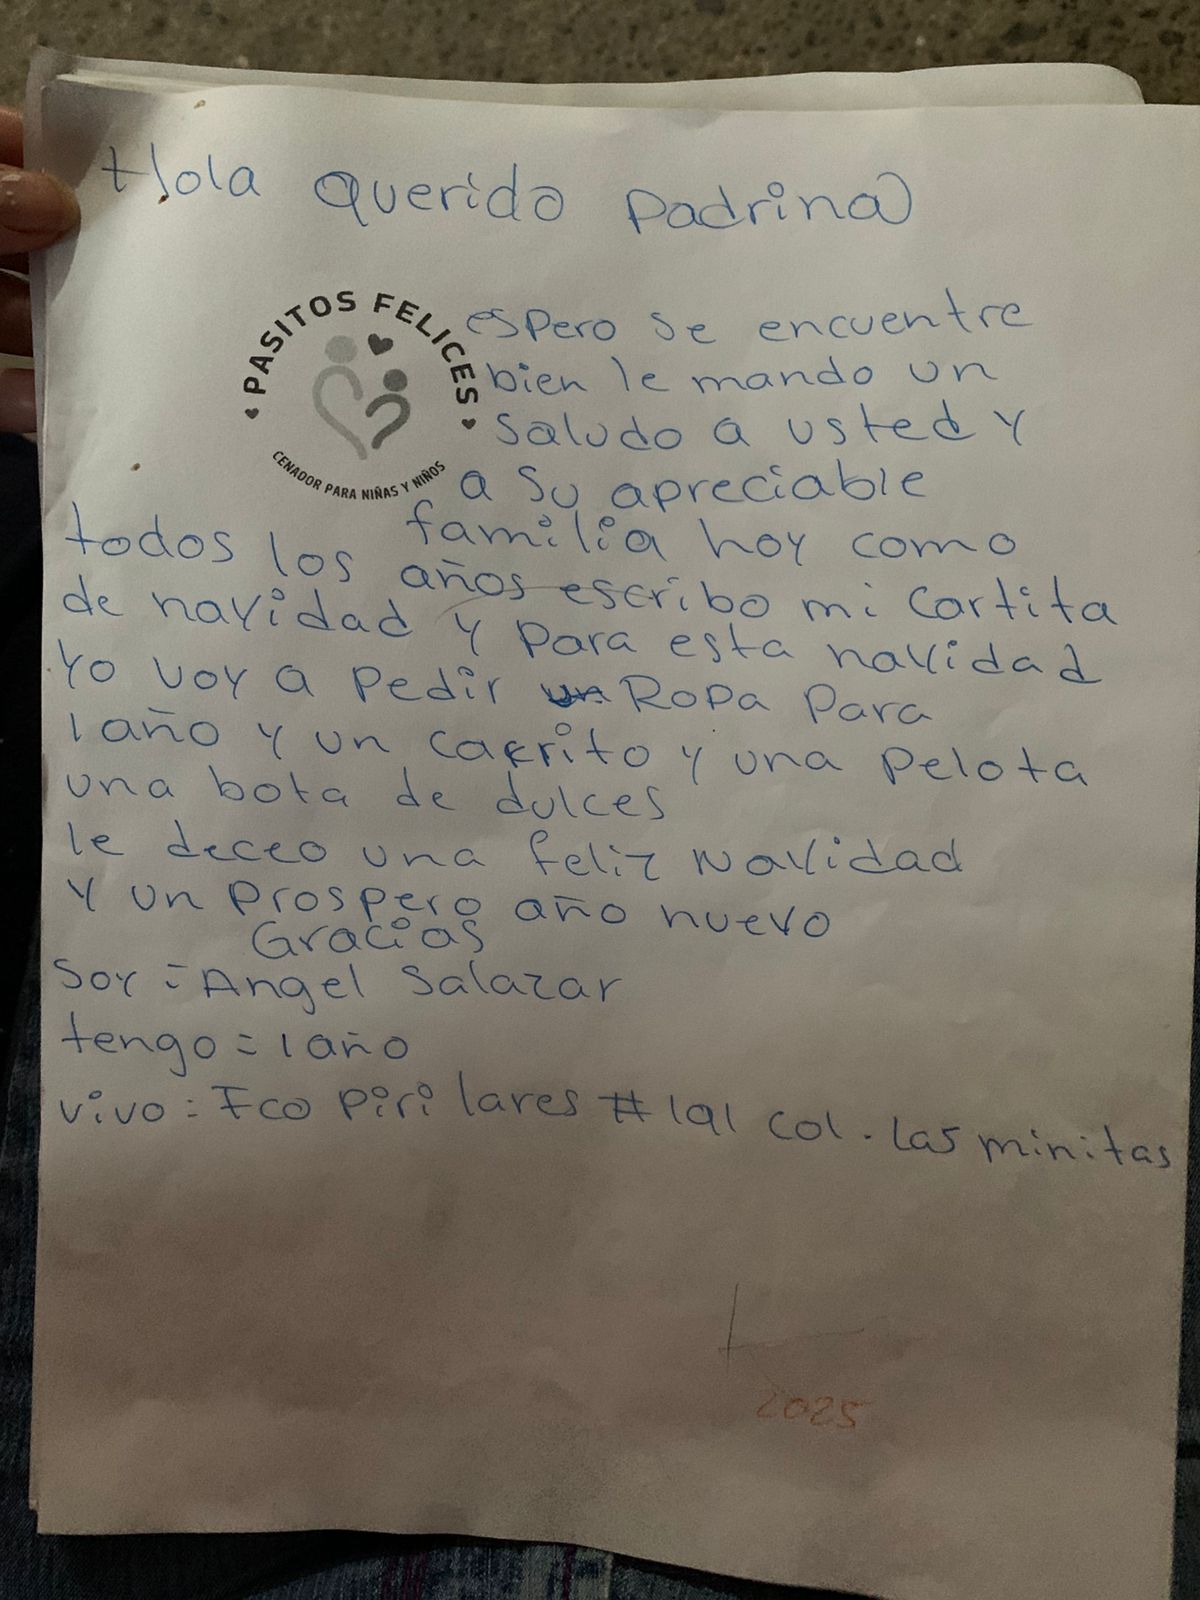 Hola Querido Padrina
PASITOS FELICES
CENADOR PARA NIÑAS Y NIÑOS
espero se encuentre
bien le mando un
saludo a usted y
a su apreciable
familia hoy como
todos los años escribo mi cartita
de navidad y para esta navidad
Yo voy a pedir un Ropa para
1 año y un carrito y una pelota
una bota de dulces
le deceo una feliz Navidad
y un prospero año nuevo
Gracias
Soy = Angel Salazar
tengo = 1 año
vivo = Fco Piri lares # 191 col. las minitas
2025